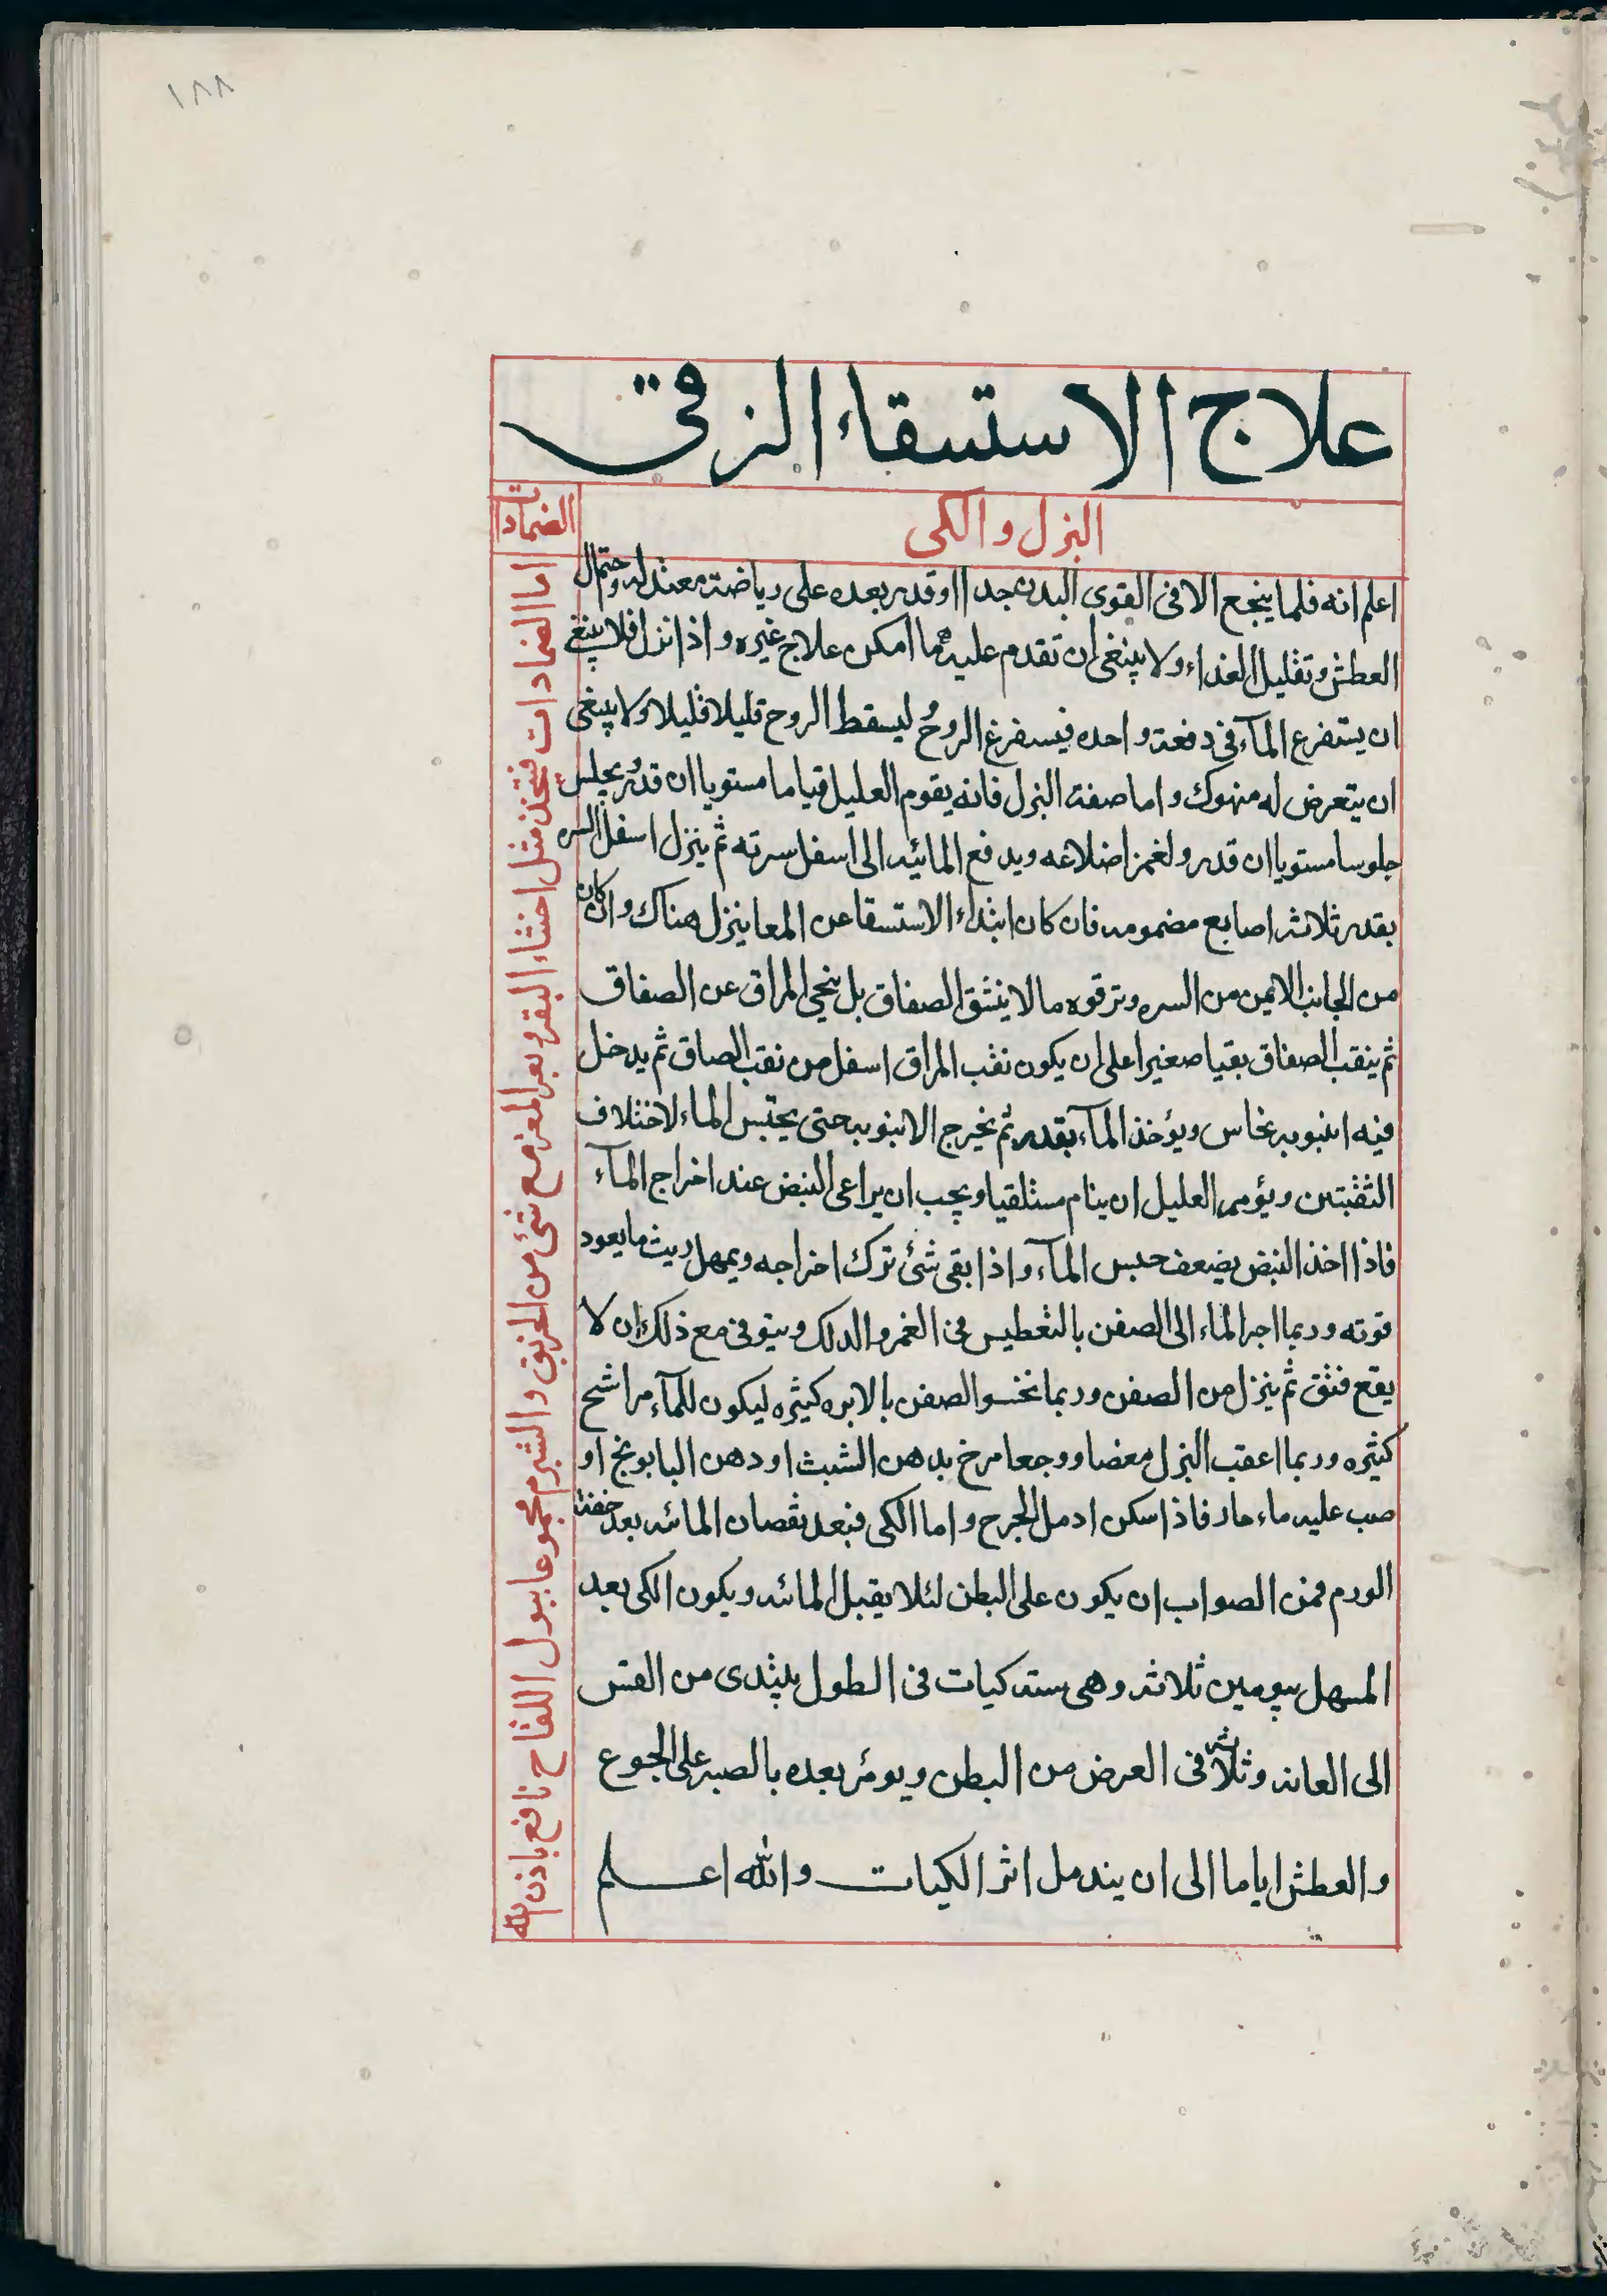 ١٨٨
علاج الاستسقاء الزقى
البزل والكى
الضمادات
اعلم انه قلما ينجع الا فى القوى البدن جدا او قدر بعده على رياضة معتدلة واحتمال
العطش وتقليل الغذاء ولا ينبغى ان تقدم عليه مهما امكن علاج غيره واذا بزل فلا ينبغى
ان يستفرع المآء فى دفعة واحده فيسفرغ الروح ليسقط الروح قليلا قليلا ولا ينبغى
ان يتعرض له منهوك واما صفة البزل فانه يقوم العليل قياما مستويا ان قدر ويجلس
جلوسا مستويا ان قدر ولغمز اضلاعه ويدفع المائيه الى اسفل سرته ثم يبزل اسفل السره
بقدر ثلاثة اصابع مضمومه فان كان ابتداء الاستسقا عن المعا يبزل هناك وان كان
من الجانب الايمن من السره وترقوه مالا ينشق الصفاق بل ينحى المراق عن الصفاق
ثم ينقب الصفاق بقيا صغيرا على ان يكون نقب المراق اسفل من نقب الصاق ثم يدخل
فيه انبوبه نحاس ويؤخذ المآء بقدر ثم يخرج الانبوبه حتى يحتبس الماء لاختلاف
الثقبتين ويؤمر العليل ان ينام مستلقيا ويجب ان يراعى النبض عند اخراج المآء
فاذا اخذ النبض يضعف حبس المآء واذا بقى شئ ترك اخراجه ويمهل ريث ما يعود
قوته وربما اجر الماء الى الصفن بالتعطيس فى الغمر والدلك ويتوقى مع ذلك ان لا
يقع فتق ثم يبزل من الصفن وربما نخسوا الصفن بالابره كثيره ليكون للمآء مراشح
كثيره وربما اعقب البزل مغصا ووجعا مرخ بدهن الشبث او دهن البابونج او
صب عليه ماء حار فاذا سكن ادمل الجرح واما الكى فبعد نقصان المائيه بعد خفة
الورم فمن الصواب ان يكون على البطن لئلا يقبل المائيه ويكون الكى بعد
المسهل بيومين ثلاثة وهى ستة كيات فى الطول يبتدى من القس
الى العانه وثلاثة فى العرض من البطن ويومر بعده بالصبر على الجوع
والعطش اياما الى ان يندمل اثر الكيات والله اعلم
اما الضمادات فتتخذ مثل اخثاء البقر وبعر المعز مع شئ من الخربق والشبرم مجموعا ببول اللقاح نافع باذن الله